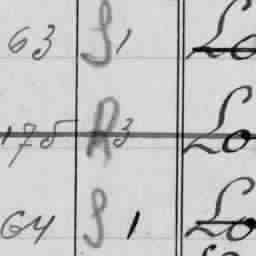 63 S 1 Lo
175 R 3 Lo
64 S 1 Lo